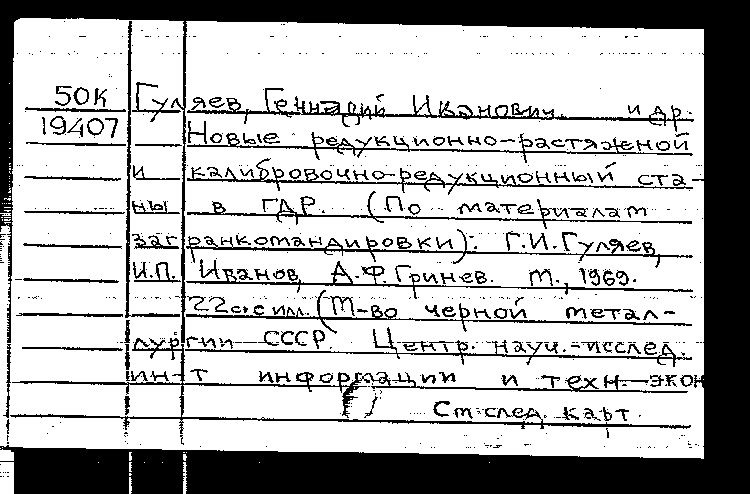 50К Гуляев, Геннадий Иванович. и др.
19407 Новые редукционно-растяжной
и калибровочно-редукционный ста-
ны в ГДР. (По материалам
загранкомандировки): Г.И.Гуляев,
И.П. Иванов, А.Ф.Гринев. М., 1969.
22с. с илл. (М-во черной метал-
лургии СССР. Центр. науч.-исслед.
ин-т информации и техн.-экон
См. след. карт.